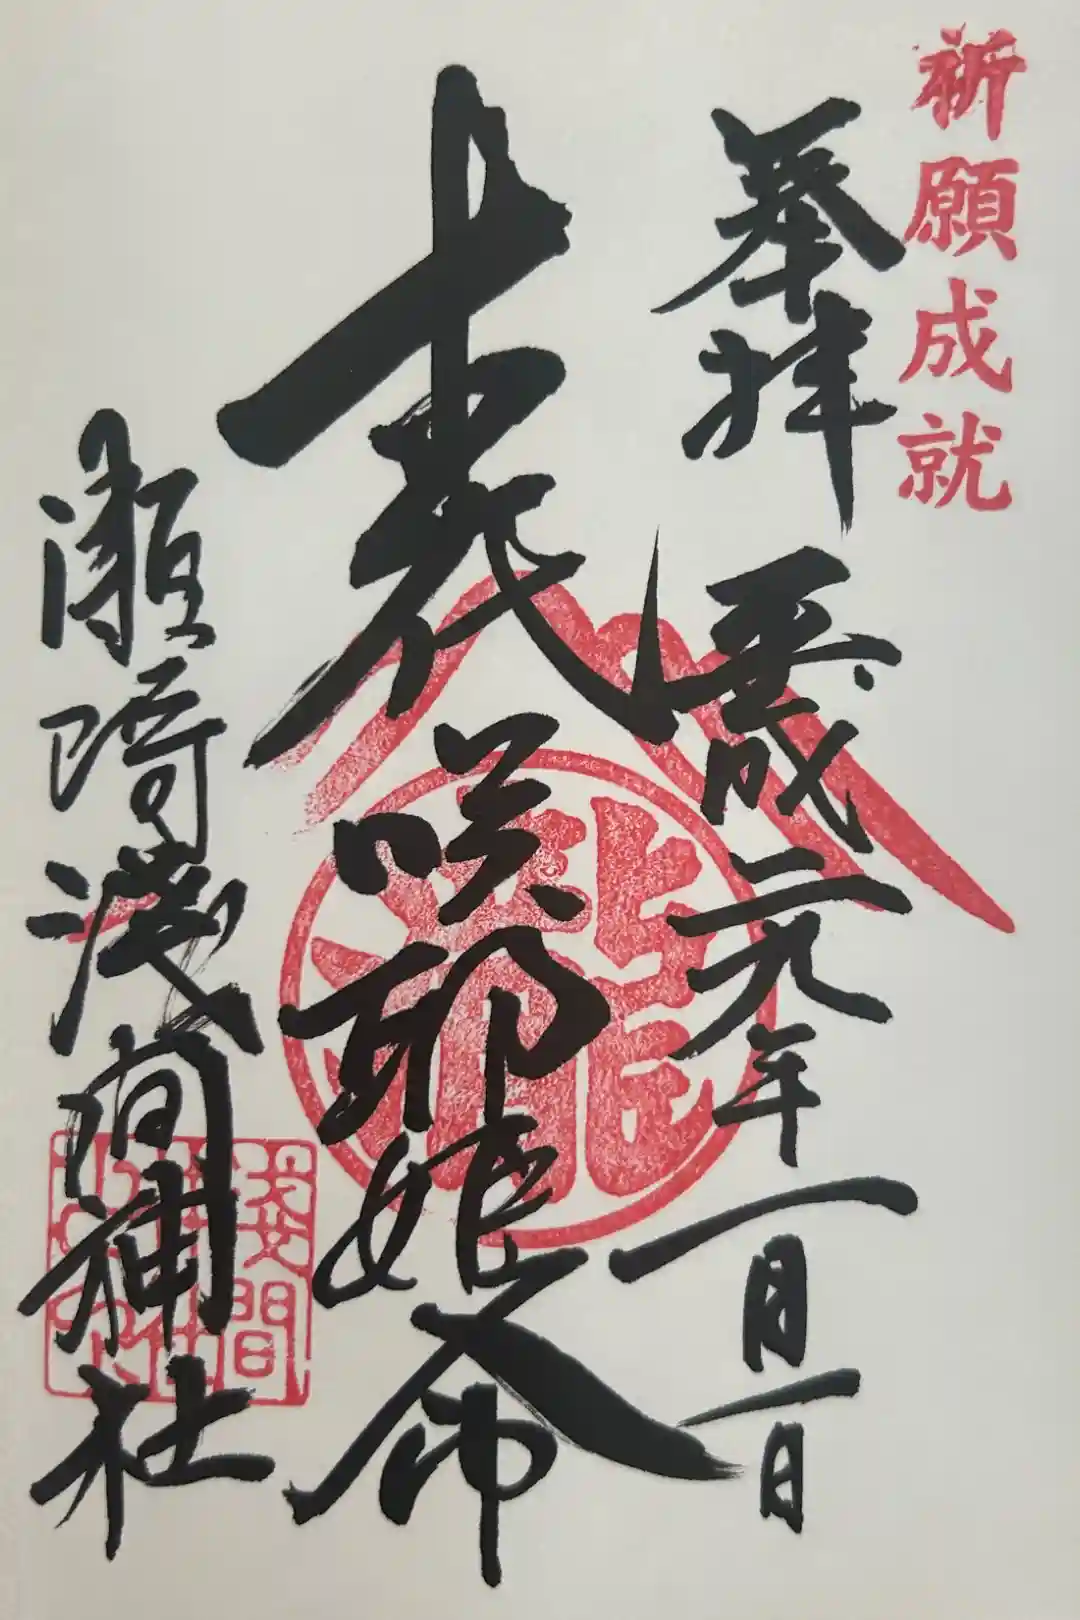 祈願成就
奉拝
平成二九年一月一日
木花咲耶姫命
瀬崎浅間神社